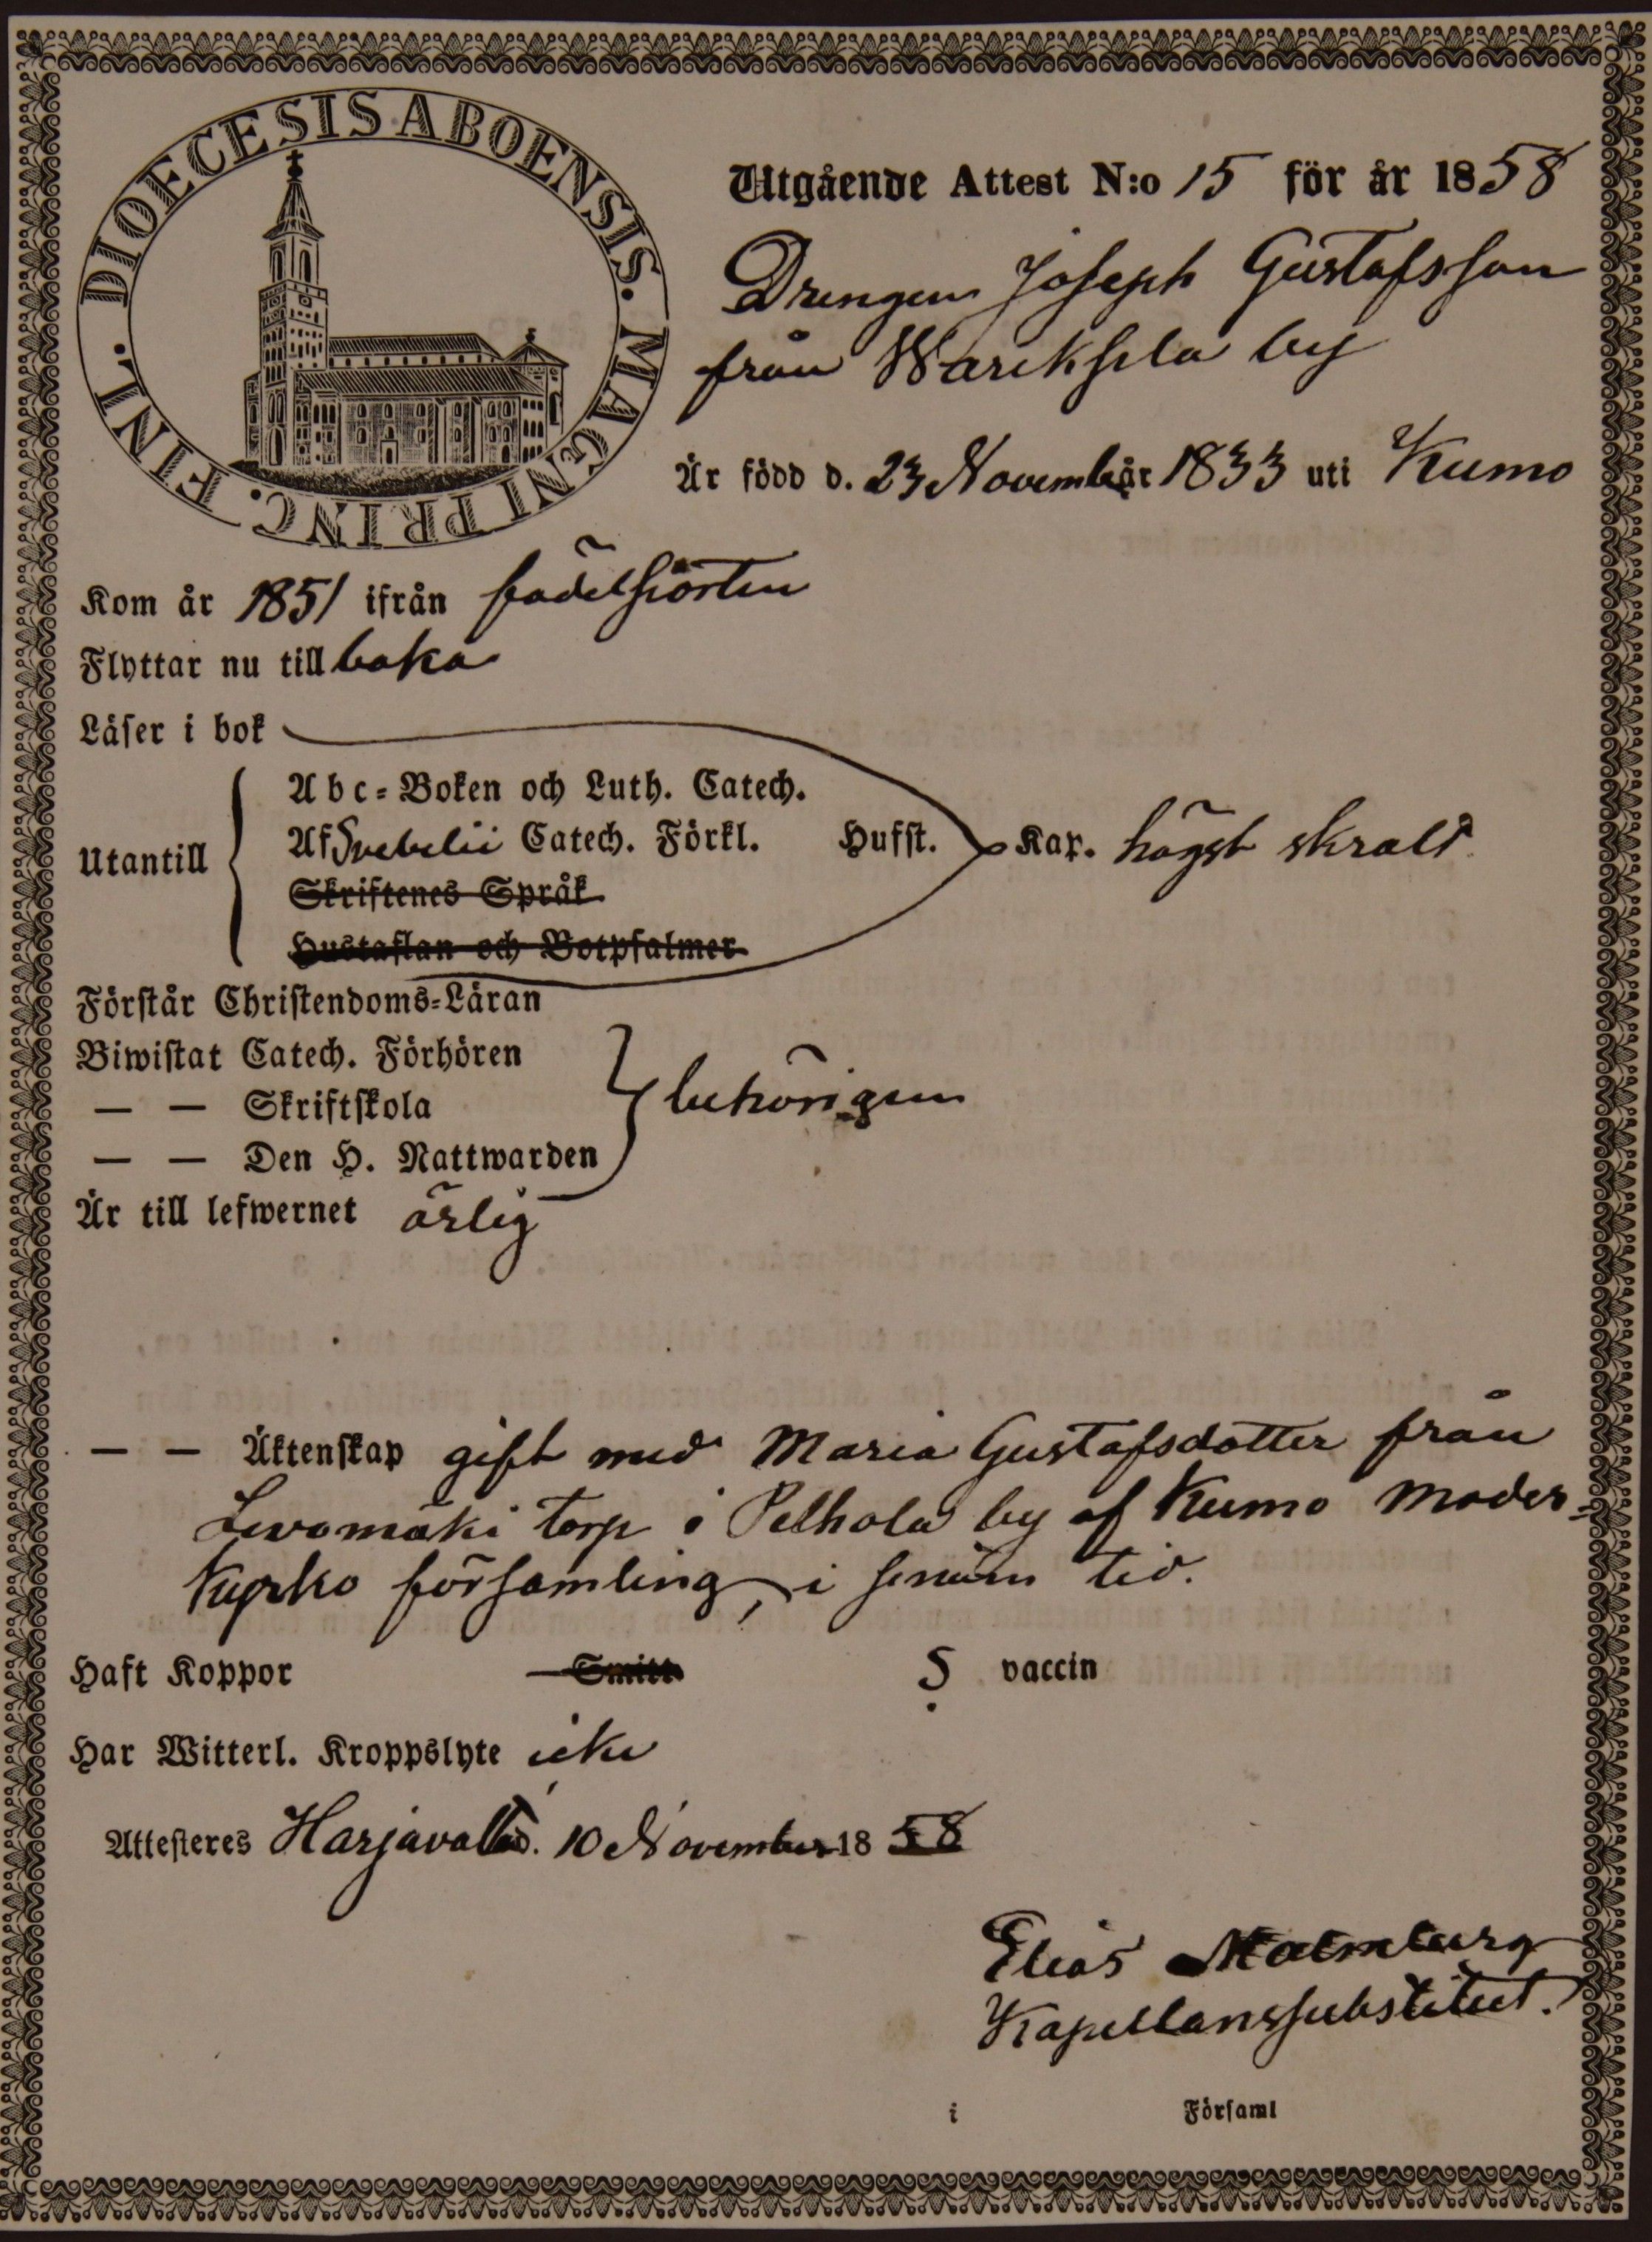 DIOECESIS ABOENSIS. MAGNI PRINC. FINL.
Utgående Attest N:o 15 för år 1858
Drengen Joseph Gustafsson
från Wareksela by
Är född d. 23 November år 1833 uti Kumo
Kom år 1851 ifrån födelseorten
Flyttar nu till baka
Läser i bok
Utantill
Abc-Boken och Luth. Catech.
Af Svebelii Catech. Förkl. Hufst. Kap. högst skralt
Skriftenes Språk
Hustaflan och Botpsalmer
Förstår Christendoms-Läran
Biwistat Catech. Förhören
— — Skriftskola behörigen
— — Den H. Nattwarden
Är till lefwernet ärlig
— — Äktenskap gift med Maria Gustafsdotter från
Levomäki torp i Pelhola by af Kumo moder-
kyrko församling, i senare tid.
Haft Koppor Smitt S vaccin
Har Witterl. Kroppslyte icke
Attesteres Harjavalla d. 10 November 1858
Elias Malmberg
Kapellanssubstitut.
i Församl